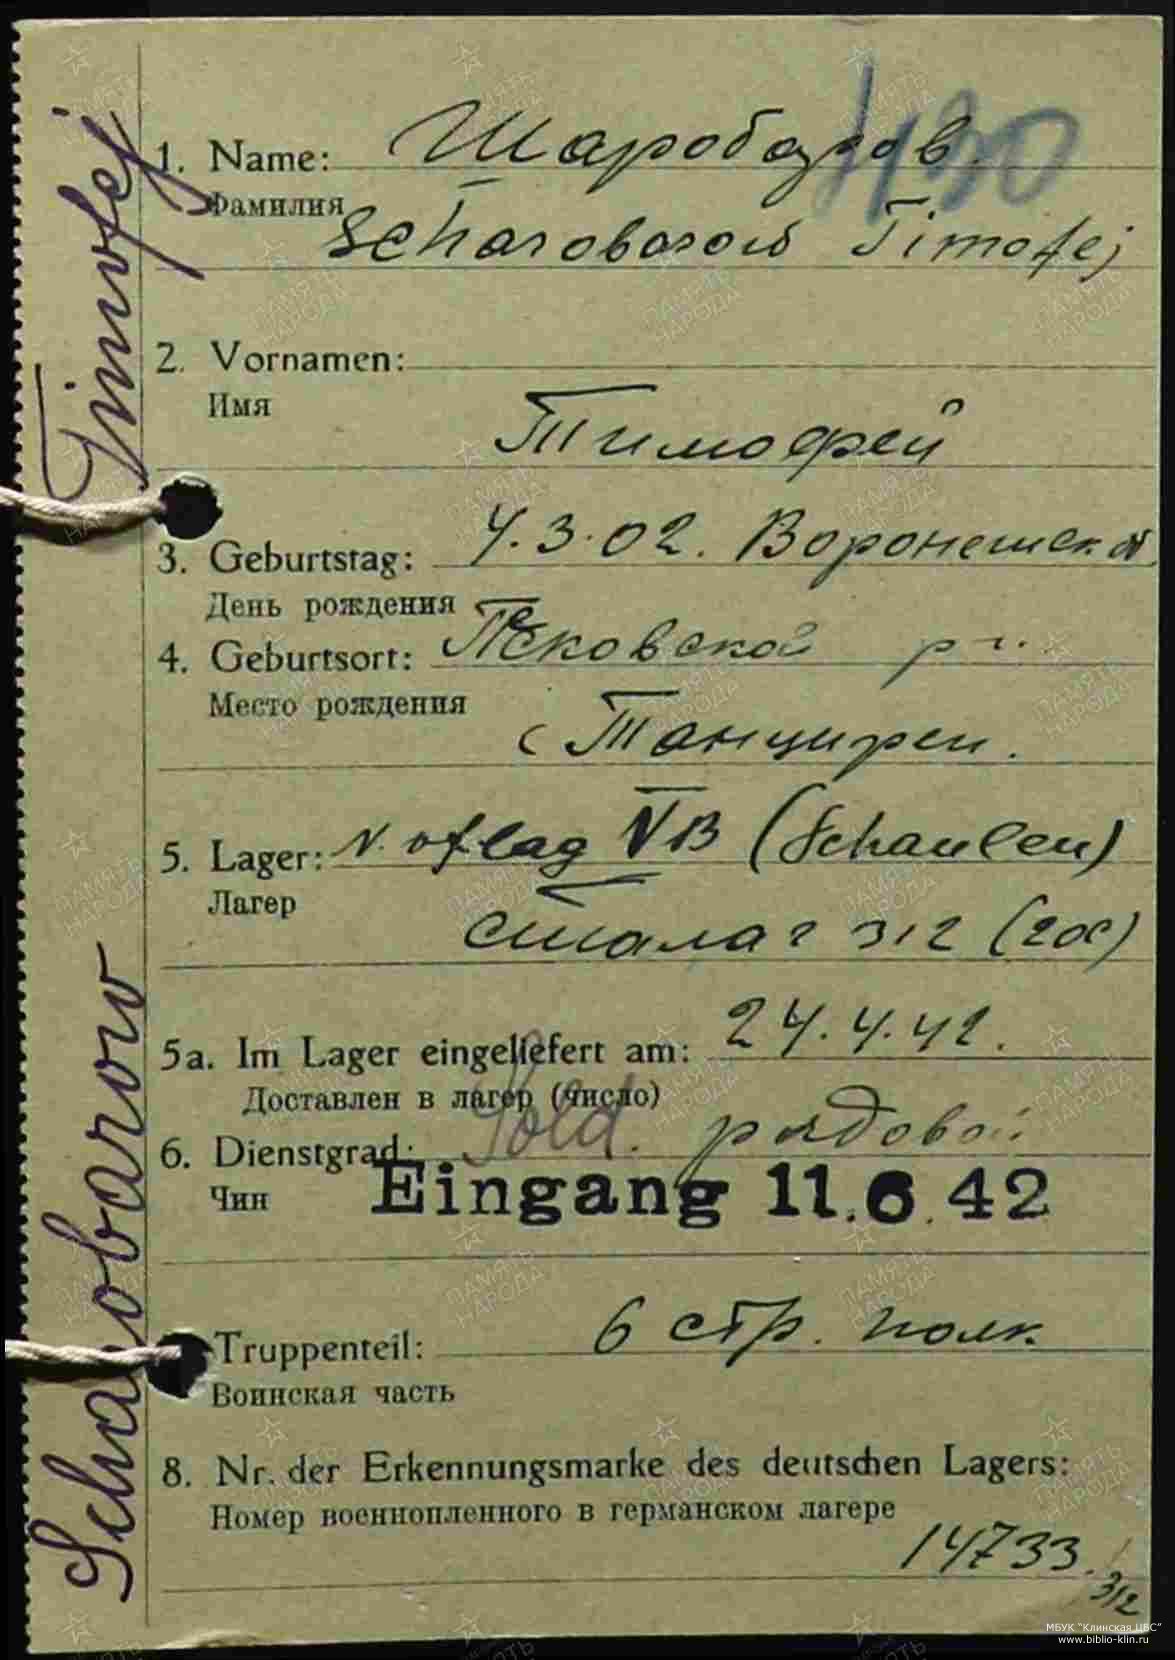 1. Name: Шаробаров.
430
Фамилия
Scharobarow Timofej
2. Vornamen:
Имя
Тимофей
3. Geburtstag: 4.3.02. Воронешск.
День рождения
4. Geburtsort:
Место рождения
с Танциреи.
5. Lager: V. oflag VB (Schaulen)
Лагер
сталаг 312 (20c)
5a. Im Lager eingeliefert am: 24.4.42.
Доставлен в лагер (число)
6. Dienstgrad: Sold. рядовой
Чин
Eingang 11.6.42
Truppenteil: 6 стр. полк
Воинская часть
8. Nr. der Erkennungsmarke des deutschen Lagers:
Номер военнопленного в германском лагере
14733.
312
Scharobarow Timofej
МБУК "Клинская ЦБС"
www.biblio-klin.ru
ПАМЯТЬ
НАРОДА